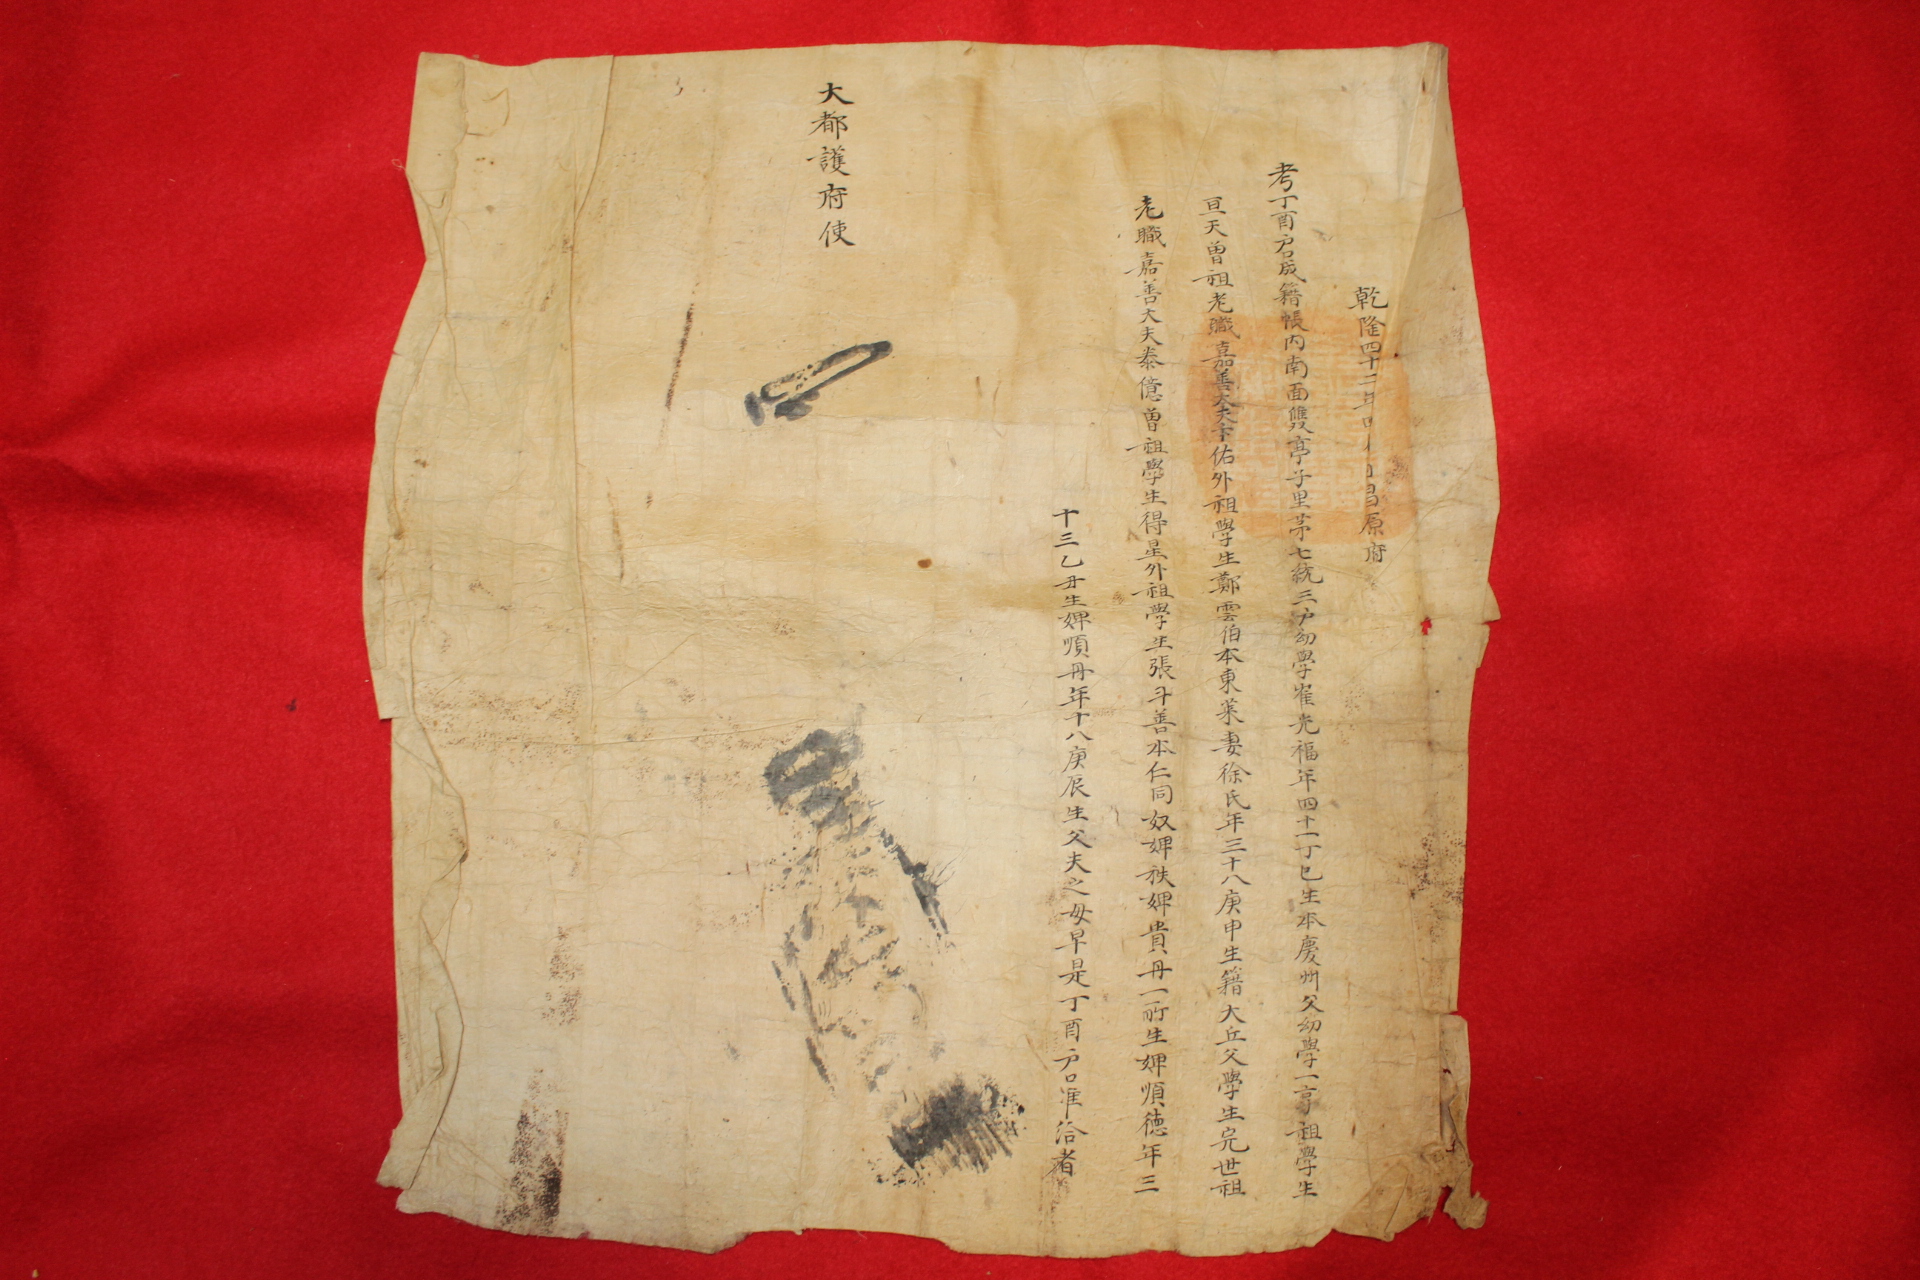 乾隆四十二年 昌原府
考丁酉戶口成籍帳內南面雙亭子里第七統三戶幼學崔光福年四十一丁巳生本慶州父幼學一亨祖學生
亘天曾祖老職嘉善大夫卞佑外祖學生鄭雲伯本東萊妻徐氏年三十八庚申生籍大丘父學生完世祖
老職嘉善大夫泰億曾祖學生得星外祖學生張斗善本仁同奴婢秩婢貴丹一所生婢順德年三
十三乙丑生婢順丹年十八庚辰生父夫之母早是丁酉戶口准給者
大都護府使